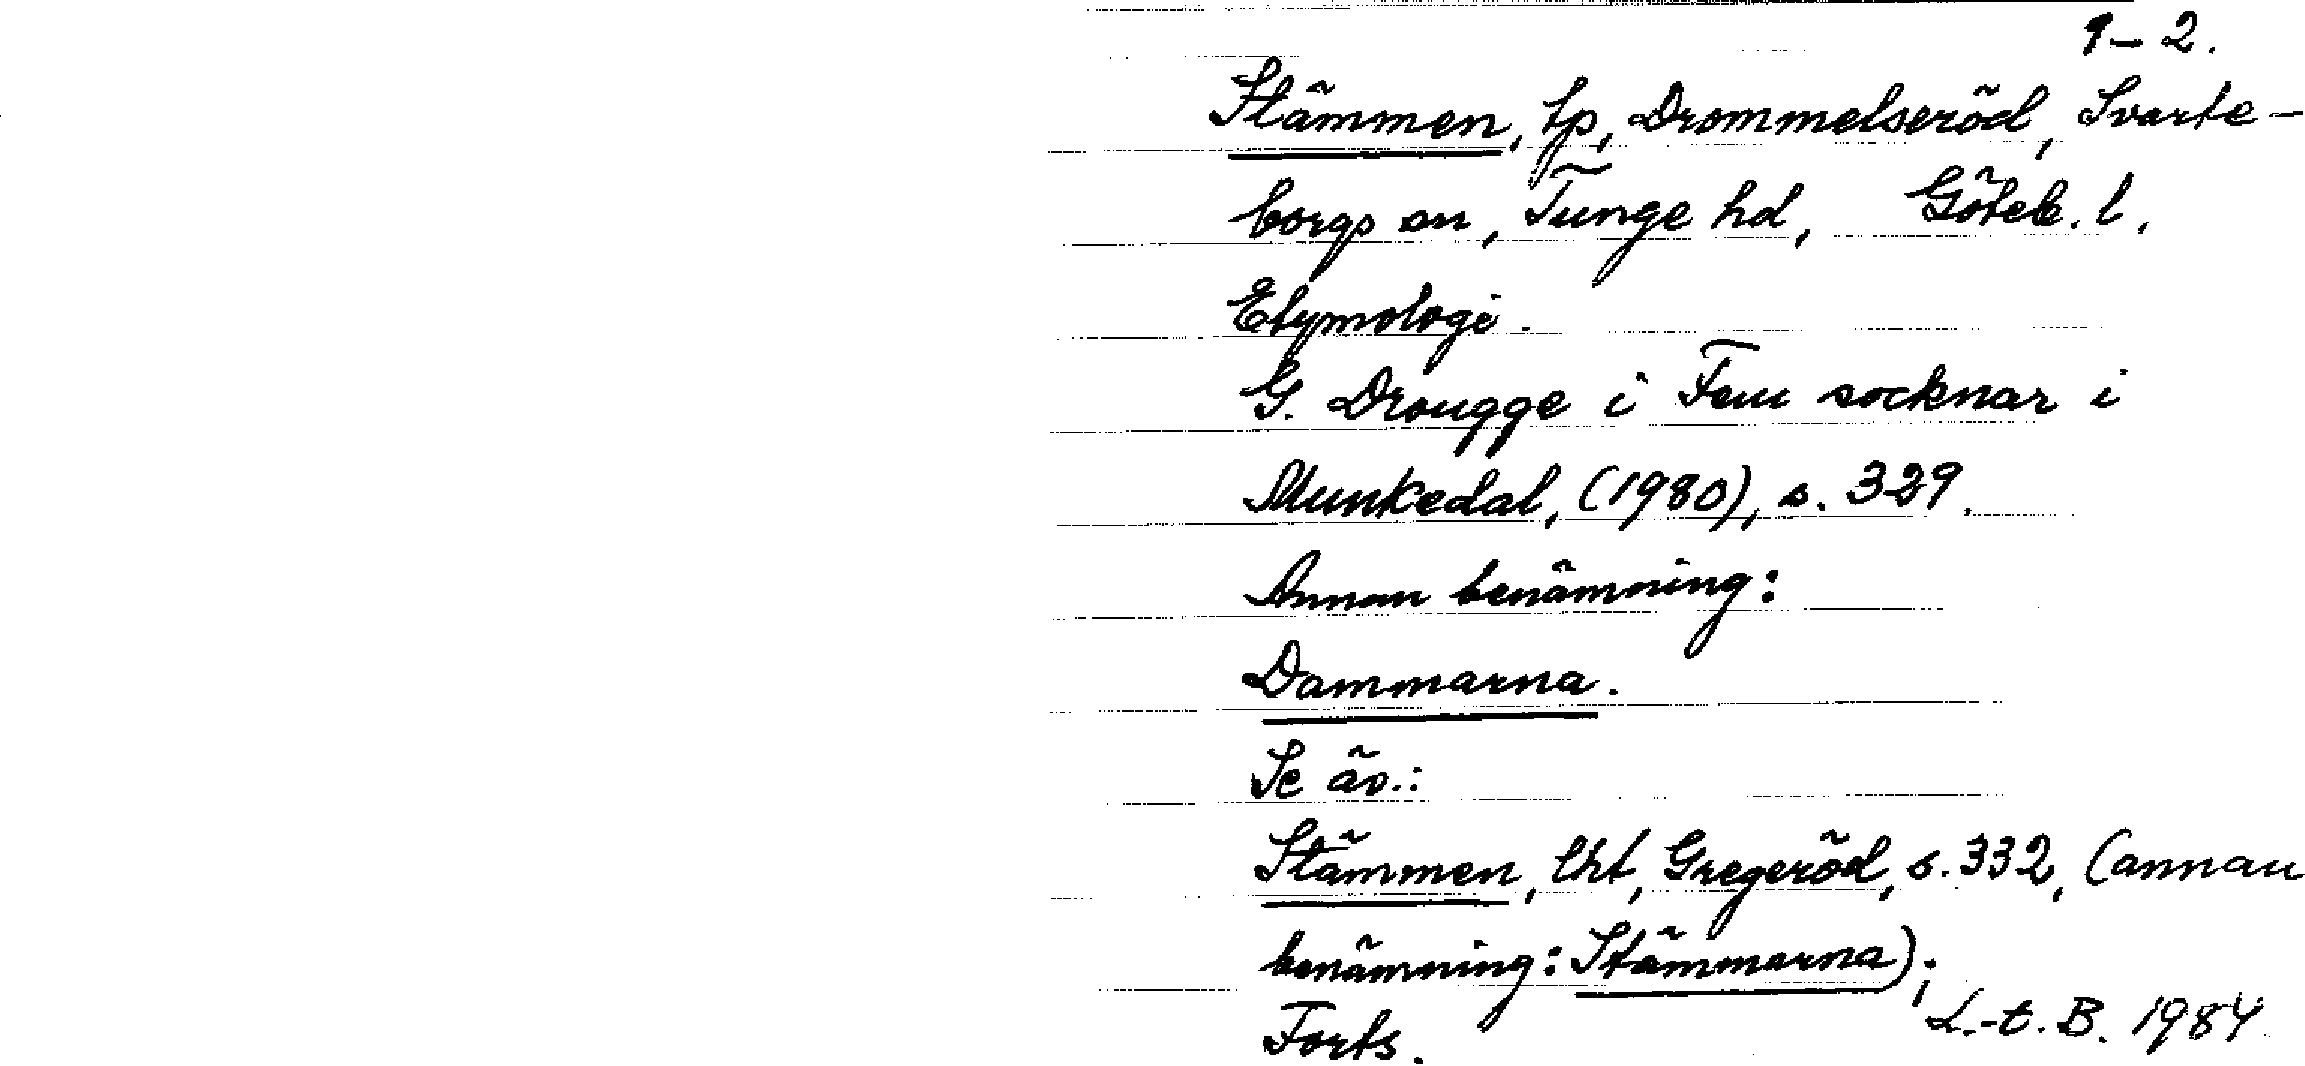 1-2.
Stämmen, tp, Drommelseröd, Svarte-
borgs sn, Tunge hd, Göteb. l.
Etymologi.
G. Drougge i Fem socknar i
Munkedal, (1980), s. 329.
Annan benämning:
Dammarna.
Se äv.:
Stämmen, lht, Gregeröd, s. 332, (annan
benämning: Stämmarna);
Forts.
L.-t. B. 1984